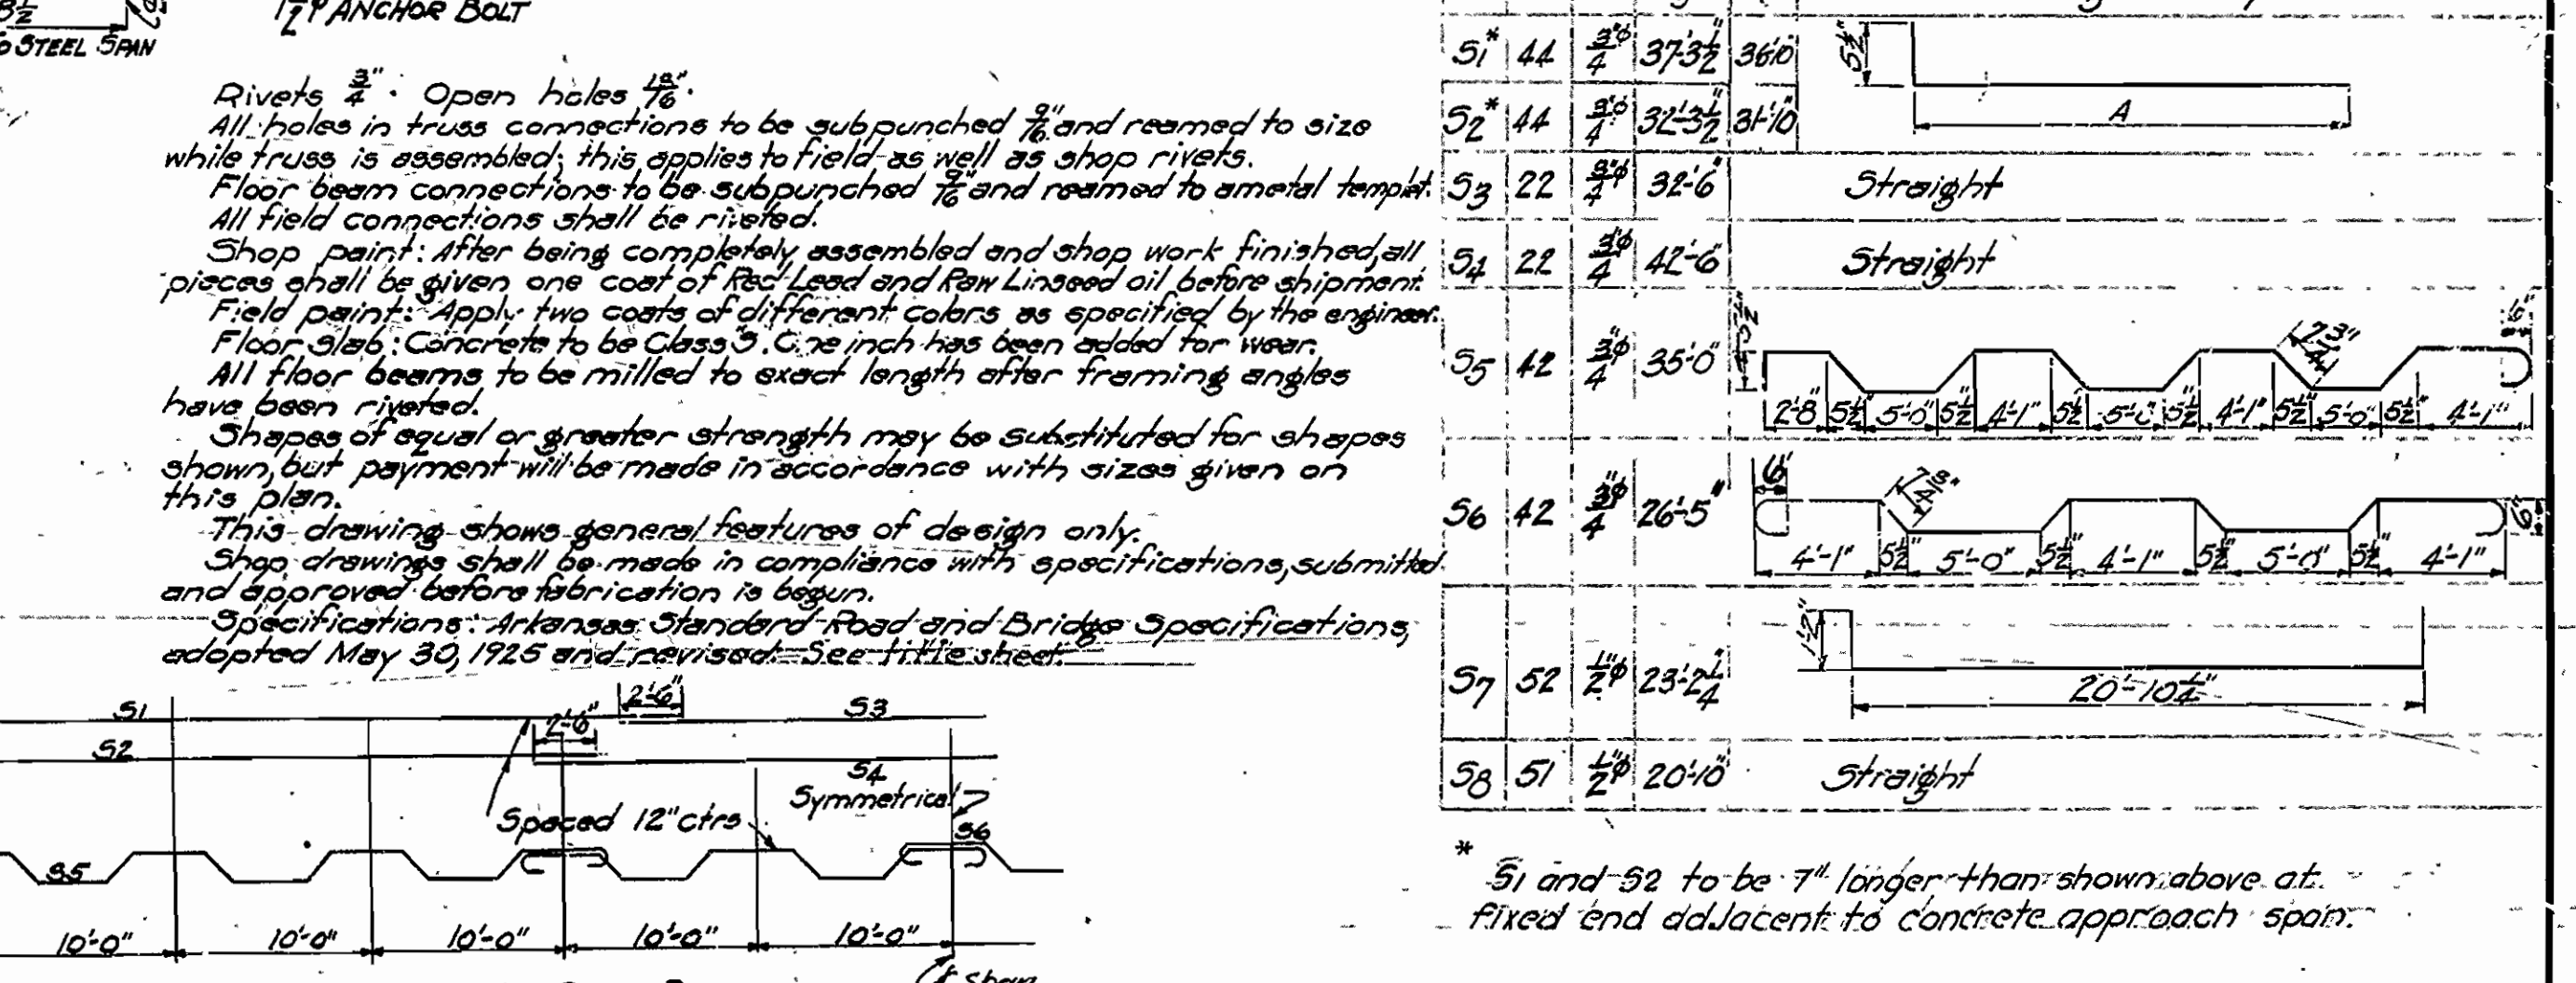 1½"φ ANCHOR BOLT
TO STEEL SPAN
Rivets 3/4". Open holes 13/16".
All holes in truss connections to be subpunched 9/16" and reamed to size
while truss is assembled; this applies to field as well as shop rivets.
Floor beam connections to be subpunched 9/16" and reamed to a metal templet.
All field connections shall be riveted.
Shop paint: After being completely assembled and shop work finished, all
pieces shall be given one coat of Red Lead and Raw Linseed oil before shipment.
Field paint: Apply two coats of different colors as specified by the engineer.
Floor Slab: Concrete to be Class S. One inch has been added for wear.
All floor beams to be milled to exact length after framing angles
have been riveted.
Shapes of equal or greater strength may be substituted for shapes
shown, but payment will be made in accordance with sizes given on
this plan.
This drawing shows general features of design only.
Shop drawings shall be made in compliance with specifications, submitted
and approved before fabrication is begun.
Specifications: Arkansas Standard Road and Bridge Specifications,
adopted May 30, 1925 and revised. See title sheet.
S1 2'-6" S3
2'-6"
S2 S4
Symmetrical
Spaced 12" ctrs
S5 S6
10'-0" 10'-0" 10'-0" 10'-0" 10'-0"
Span
S1* 44 3/4"φ 37'-3½" 36'-10" 5½"
S2* 44 3/4"φ 32'-3½" 31'-10" A
S3 22 3/4"φ 32'-6" Straight
S4 22 3/4"φ 42'-6" Straight
S5 42 3/4"φ 35'-0" 6"
2'-8" 5½" 5'-0" 5½" 4'-1" 5½" 5'-0" 5½" 4'-1" 5½" 5'-0" 5½" 4'-1"
S6 42 3/4"φ 26'-5" 6" 6"
4'-1" 5½" 5'-0" 5½" 4'-1" 5½" 5'-0" 5½" 4'-1"
S7 52 ½"φ 23'-2¼" 1'-2" 20'-10¼"
S8 51 ½"φ 20'-10" Straight
* S1 and S2 to be 7" longer than shown above at
fixed end adjacent to concrete approach span.